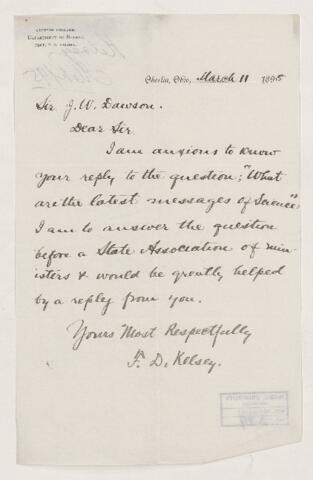 OBERLIN COLLEGE
DEPARTMENT OF BOTANY
Oberlin, Ohio, March 11 1895
Sir J. W. Dawson.
Dear Sir.
I am anxious to know
your reply to the question; "What
are the latest messages of Science"?
I am to answer the question
before a State Association of min-
isters & would be greatly helped
by a reply from you.
Yours Most Respectfully
F. D. Kelsey.